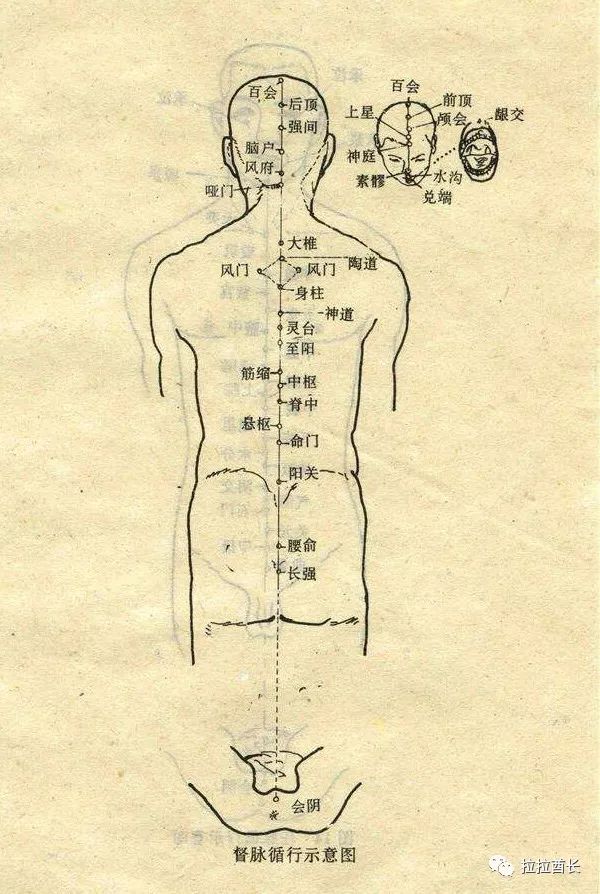 百会
后顶
强间
脑户
风府
哑门
大椎
陶道
风门
风门
身柱
神道
灵台
至阳
筋缩
中枢
脊中
悬枢
命门
阳关
腰俞
长强
会阴
百会
前顶
上星
颅会
龈交
神庭
素髎
水沟
兑端
督脉循行示意图
拉拉酋长